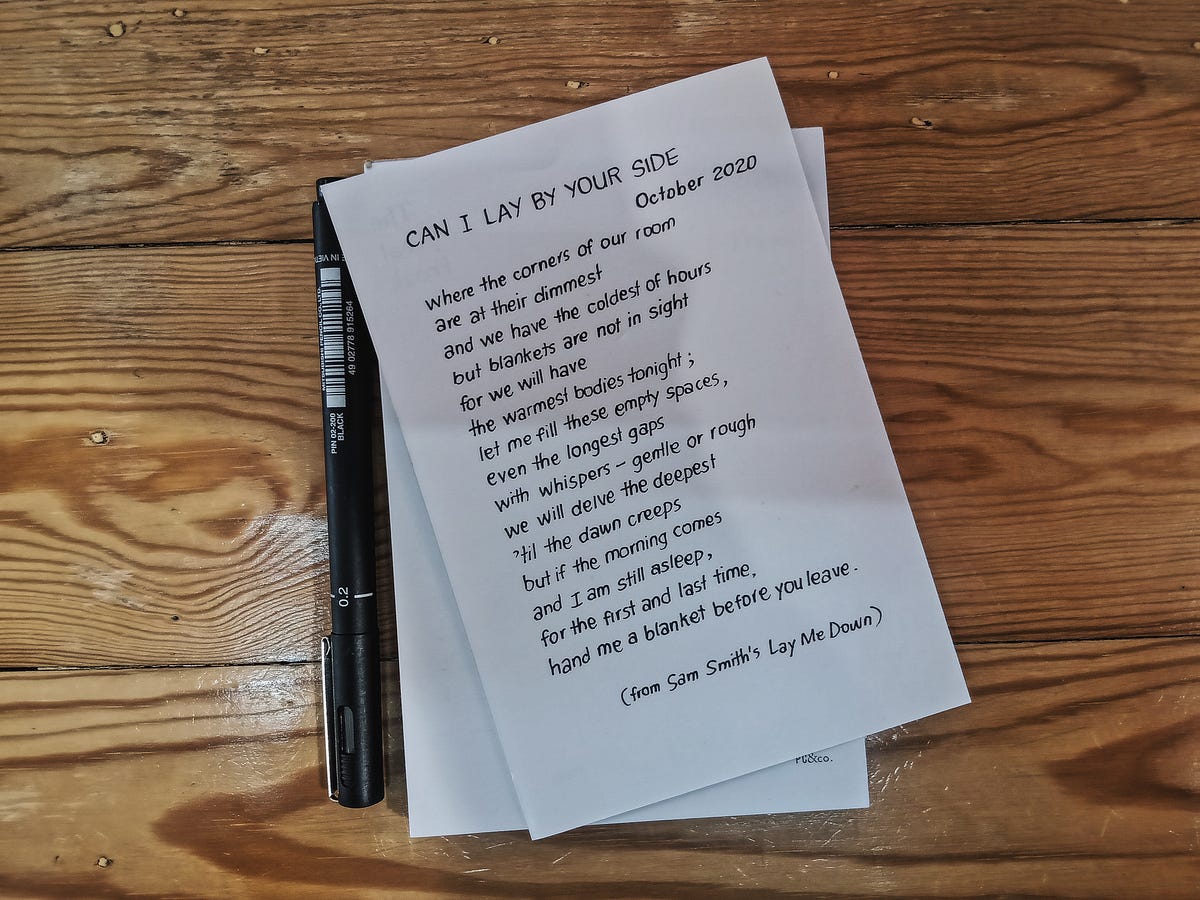 CAN I LAY BY YOUR SIDE
October 2020
where the corners of our room
are at their dimmest
and we have the coldest of hours
but blankets are not in sight
for we will have
the warmest bodies tonight;
let me fill these empty spaces,
even the longest gaps
with whispers - gentle or rough
we will delve the deepest
'til the dawn creeps
but if the morning comes
and I am still asleep,
for the first and last time,
hand me a blanket before you leave.
(from Sam Smith's Lay Me Down)
49 02778 915264
PIN 02-200
BLACK
0.2